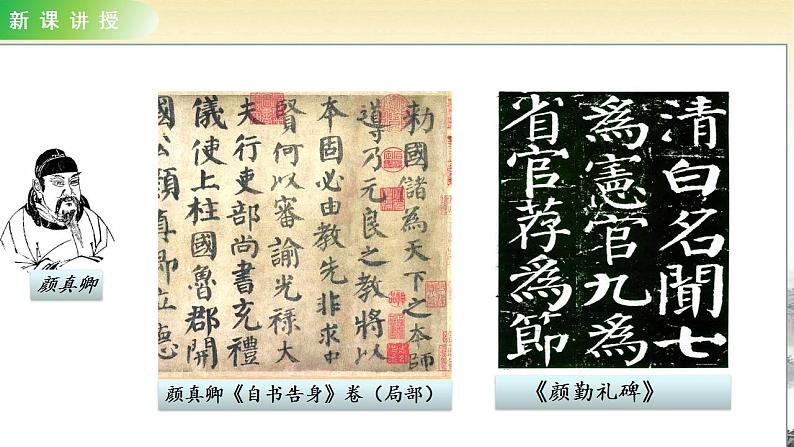 新课讲授
勑國儲為天下之本師
導乃元良之教將以
本固必由教先非求中
賢何以審諭光祿大
夫行吏部尚書充禮
儀使上柱國魯郡開
國公顏真卿立德
清白名聞七
為憲官九為
省官荐為節
颜真卿
颜真卿《自书告身》卷（局部）
《颜勤礼碑》